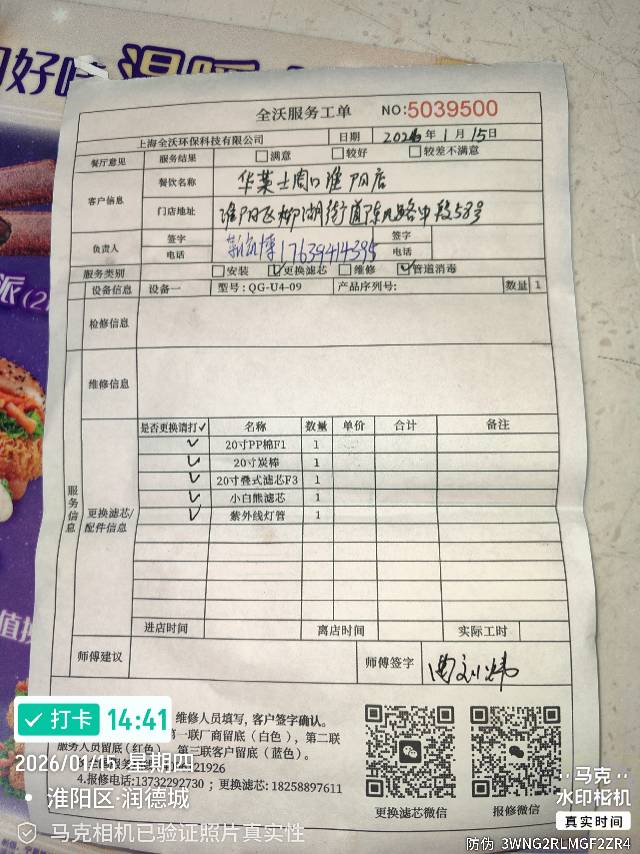 全沃服务工单 NO:5039500
上海全沃环保科技有限公司 日期 2026年1月15日
餐厅意见 服务结果 □满意 □较好 □较差不满意
客户信息 餐饮名称 华莱士周口淮阳店
门店地址 淮阳区柳湖街道陈风路中段58号
负责人 签字 签字
电话 17639414395 电话
服务类别 □安装 ☑更换滤芯 □维修 ☑管道消毒
设备信息 设备一 型号:QG-U4-09 产品序列号: 数量 1
检修信息
维修信息
服务信息
更换滤芯/配件信息
是否更换请打✓ 名称 数量 单价 合计 备注
✓ 20寸PP棉F1 1
✓ 20寸炭棒 1
✓ 20寸叠式滤芯F3 1
✓ 小白熊滤芯 1
✓ 紫外线灯管 1
进店时间 离店时间 实际工时
师傅建议 师傅签字
维修人员填写,客户签字确认。
第一联厂商留底(白色),第二联
服务人员留底(红色),第三联客户留底(蓝色)。
21926
4.报修电话:13732292730;更换滤芯:18258897611
更换滤芯微信 报修微信
打卡 14:41
2026/01/15 星期四
淮阳区·润德城
马克相机已验证照片真实性
马克
水印相机
真实时间
防伪 3WNG2RLMGF2ZR4